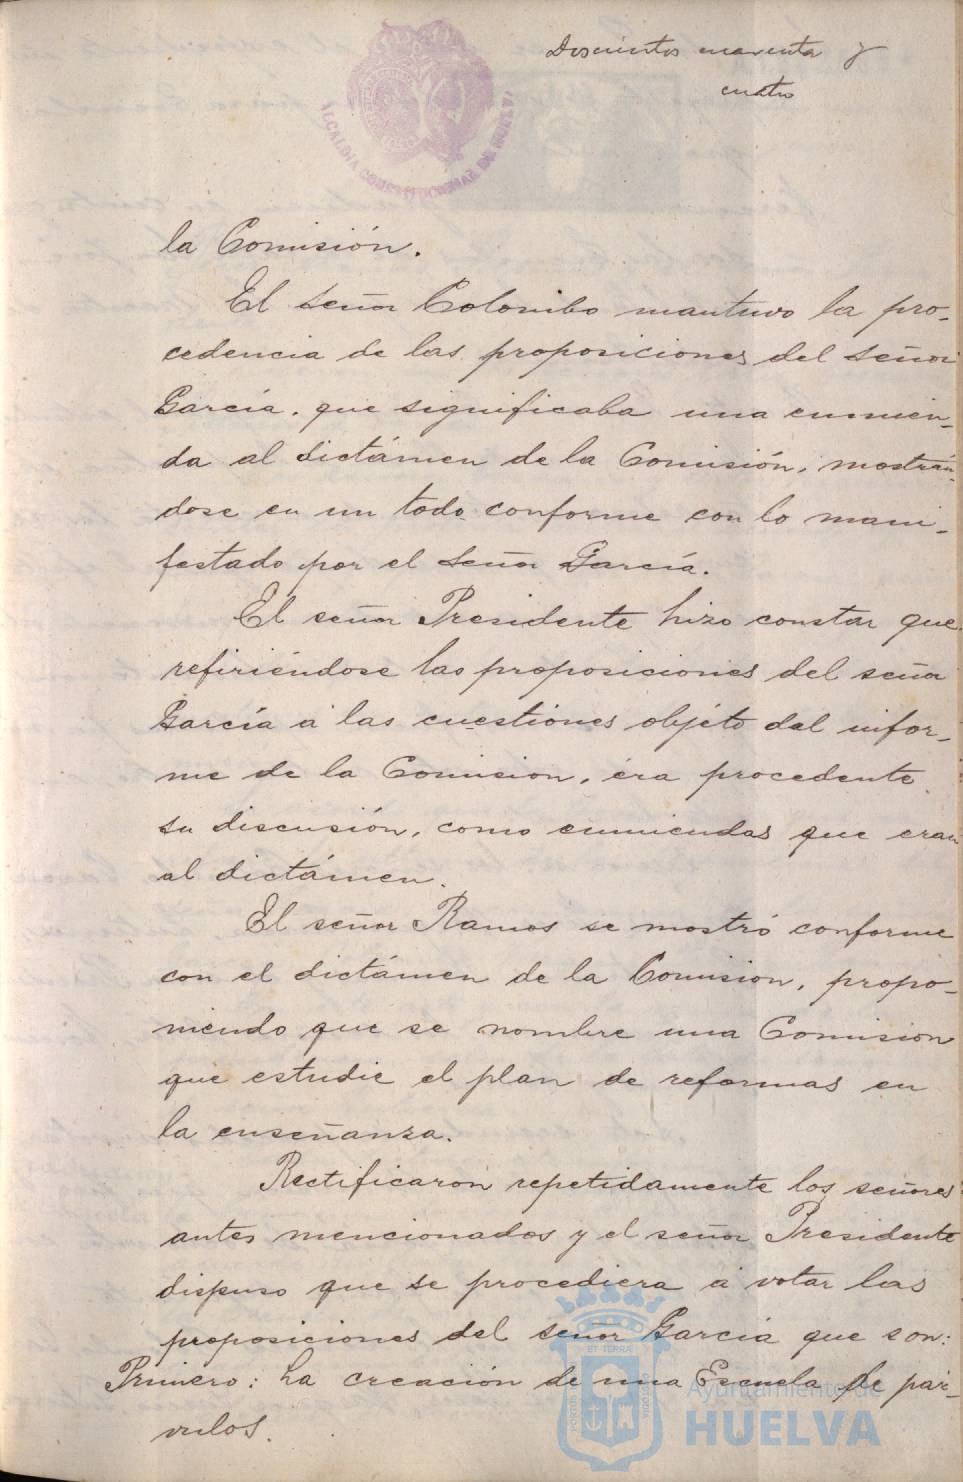 Doscientos cuarenta y
cuatro
ALCALDIA CONSTITUCIONAL DE HUELVA
la Comisión.
El señor Colombo mantuvo la pro-
cedencia de las proposiciones del señor
García, que significaba una enmien-
da al dictámen de la Comisión, mostrán-
dose en un todo conforme con lo mani-
festado por el señor García.
El señor Presidente hizo constar que
refiriéndose las proposiciones del señor
García a las cuestiones objéto del infor-
me de la Comision, era procedente
su discusión, como enmiendas que eran
al dictámen.
El señor Ramos se mostró conforme
con el dictámen de la Comision, propo-
niendo que se nombre una Comision
que estudie el plan de reformas en
la enseñanza.
Rectificaron repetidamente los señores
antes mencionados y el señor Presidente
dispuso que se procediera a votar las
proposiciones del señor García que son:
Primero: La creación de una Escuela de par-
vulos.
ET TERRA
Ayuntamiento de
HUELVA